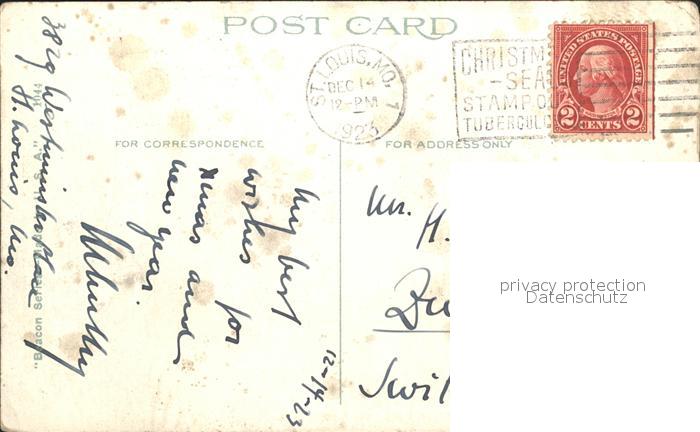 POST CARD
ST. LOUIS, MO. 1
DEC 14
12-PM
1923
CHRISTM
SEA
STAMP OU
TUBERCULO
UNITED STATES POSTAGE
2 CENTS 2
FOR CORRESPONDENCE
FOR ADDRESS ONLY
3829 Westminster Place
St. Louis, Mo.
My best
wishes for
Xmas and
new year.
12-14-23
Mr. H.
Swit
privacy protection
Datenschutz